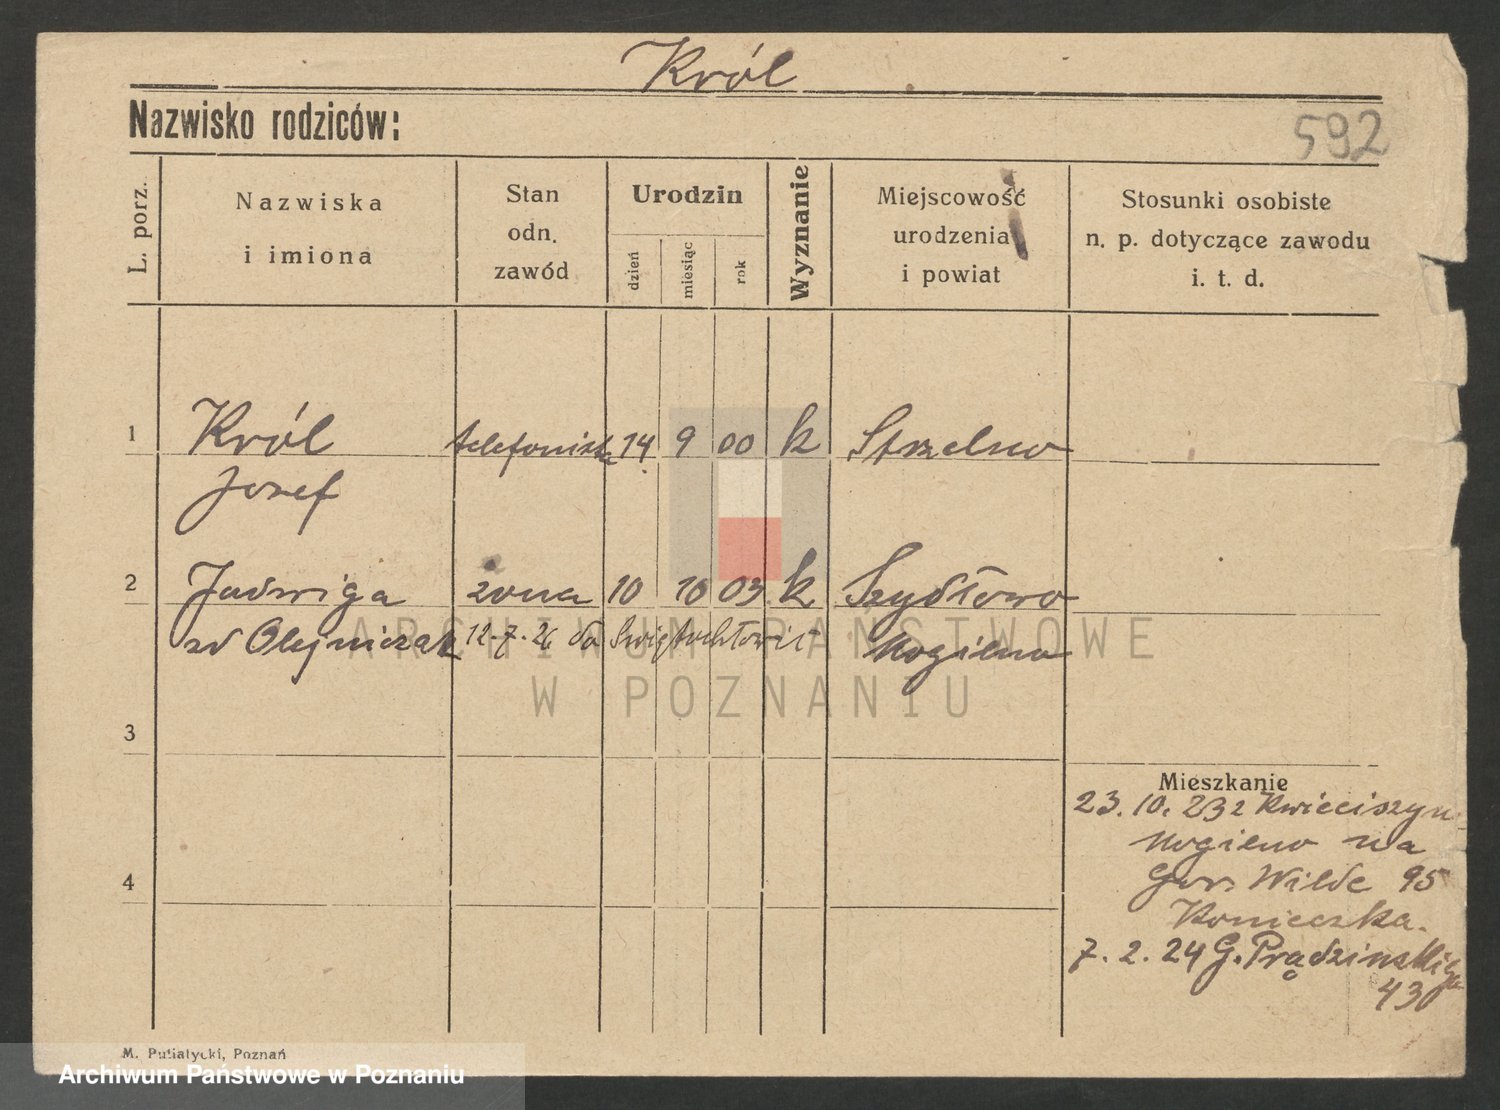 Król
Nazwisko rodziców:
592
L. porz.
Nazwiska
i imiona
Stan
odn.
zawód
Urodzin
dzień
miesiąc
rok
Wyznanie
Miejscowość
urodzenia
i powiat
Stosunki osobiste
n. p. dotyczące zawodu
i. t. d.
1 Król telefonista 14 9 00 k Strzelno
Jozef
2 Jadwiga zona 10 10 03 k Szydłowo
zd Olejniczak 12.7.26 do Swiętochłowic Mogilno
ARCHIWUM PAŃSTWOWE
W POZNANIU
3
Mieszkanie
23. 10. 23 z Kwieciszyn
Mogilno na
Gor. Wilde 95
4
Konieczka.
7. 2. 24 G. Prądzinskiego
43
M. Putiatycki, Poznań
Archiwum Państwowe w Poznaniu